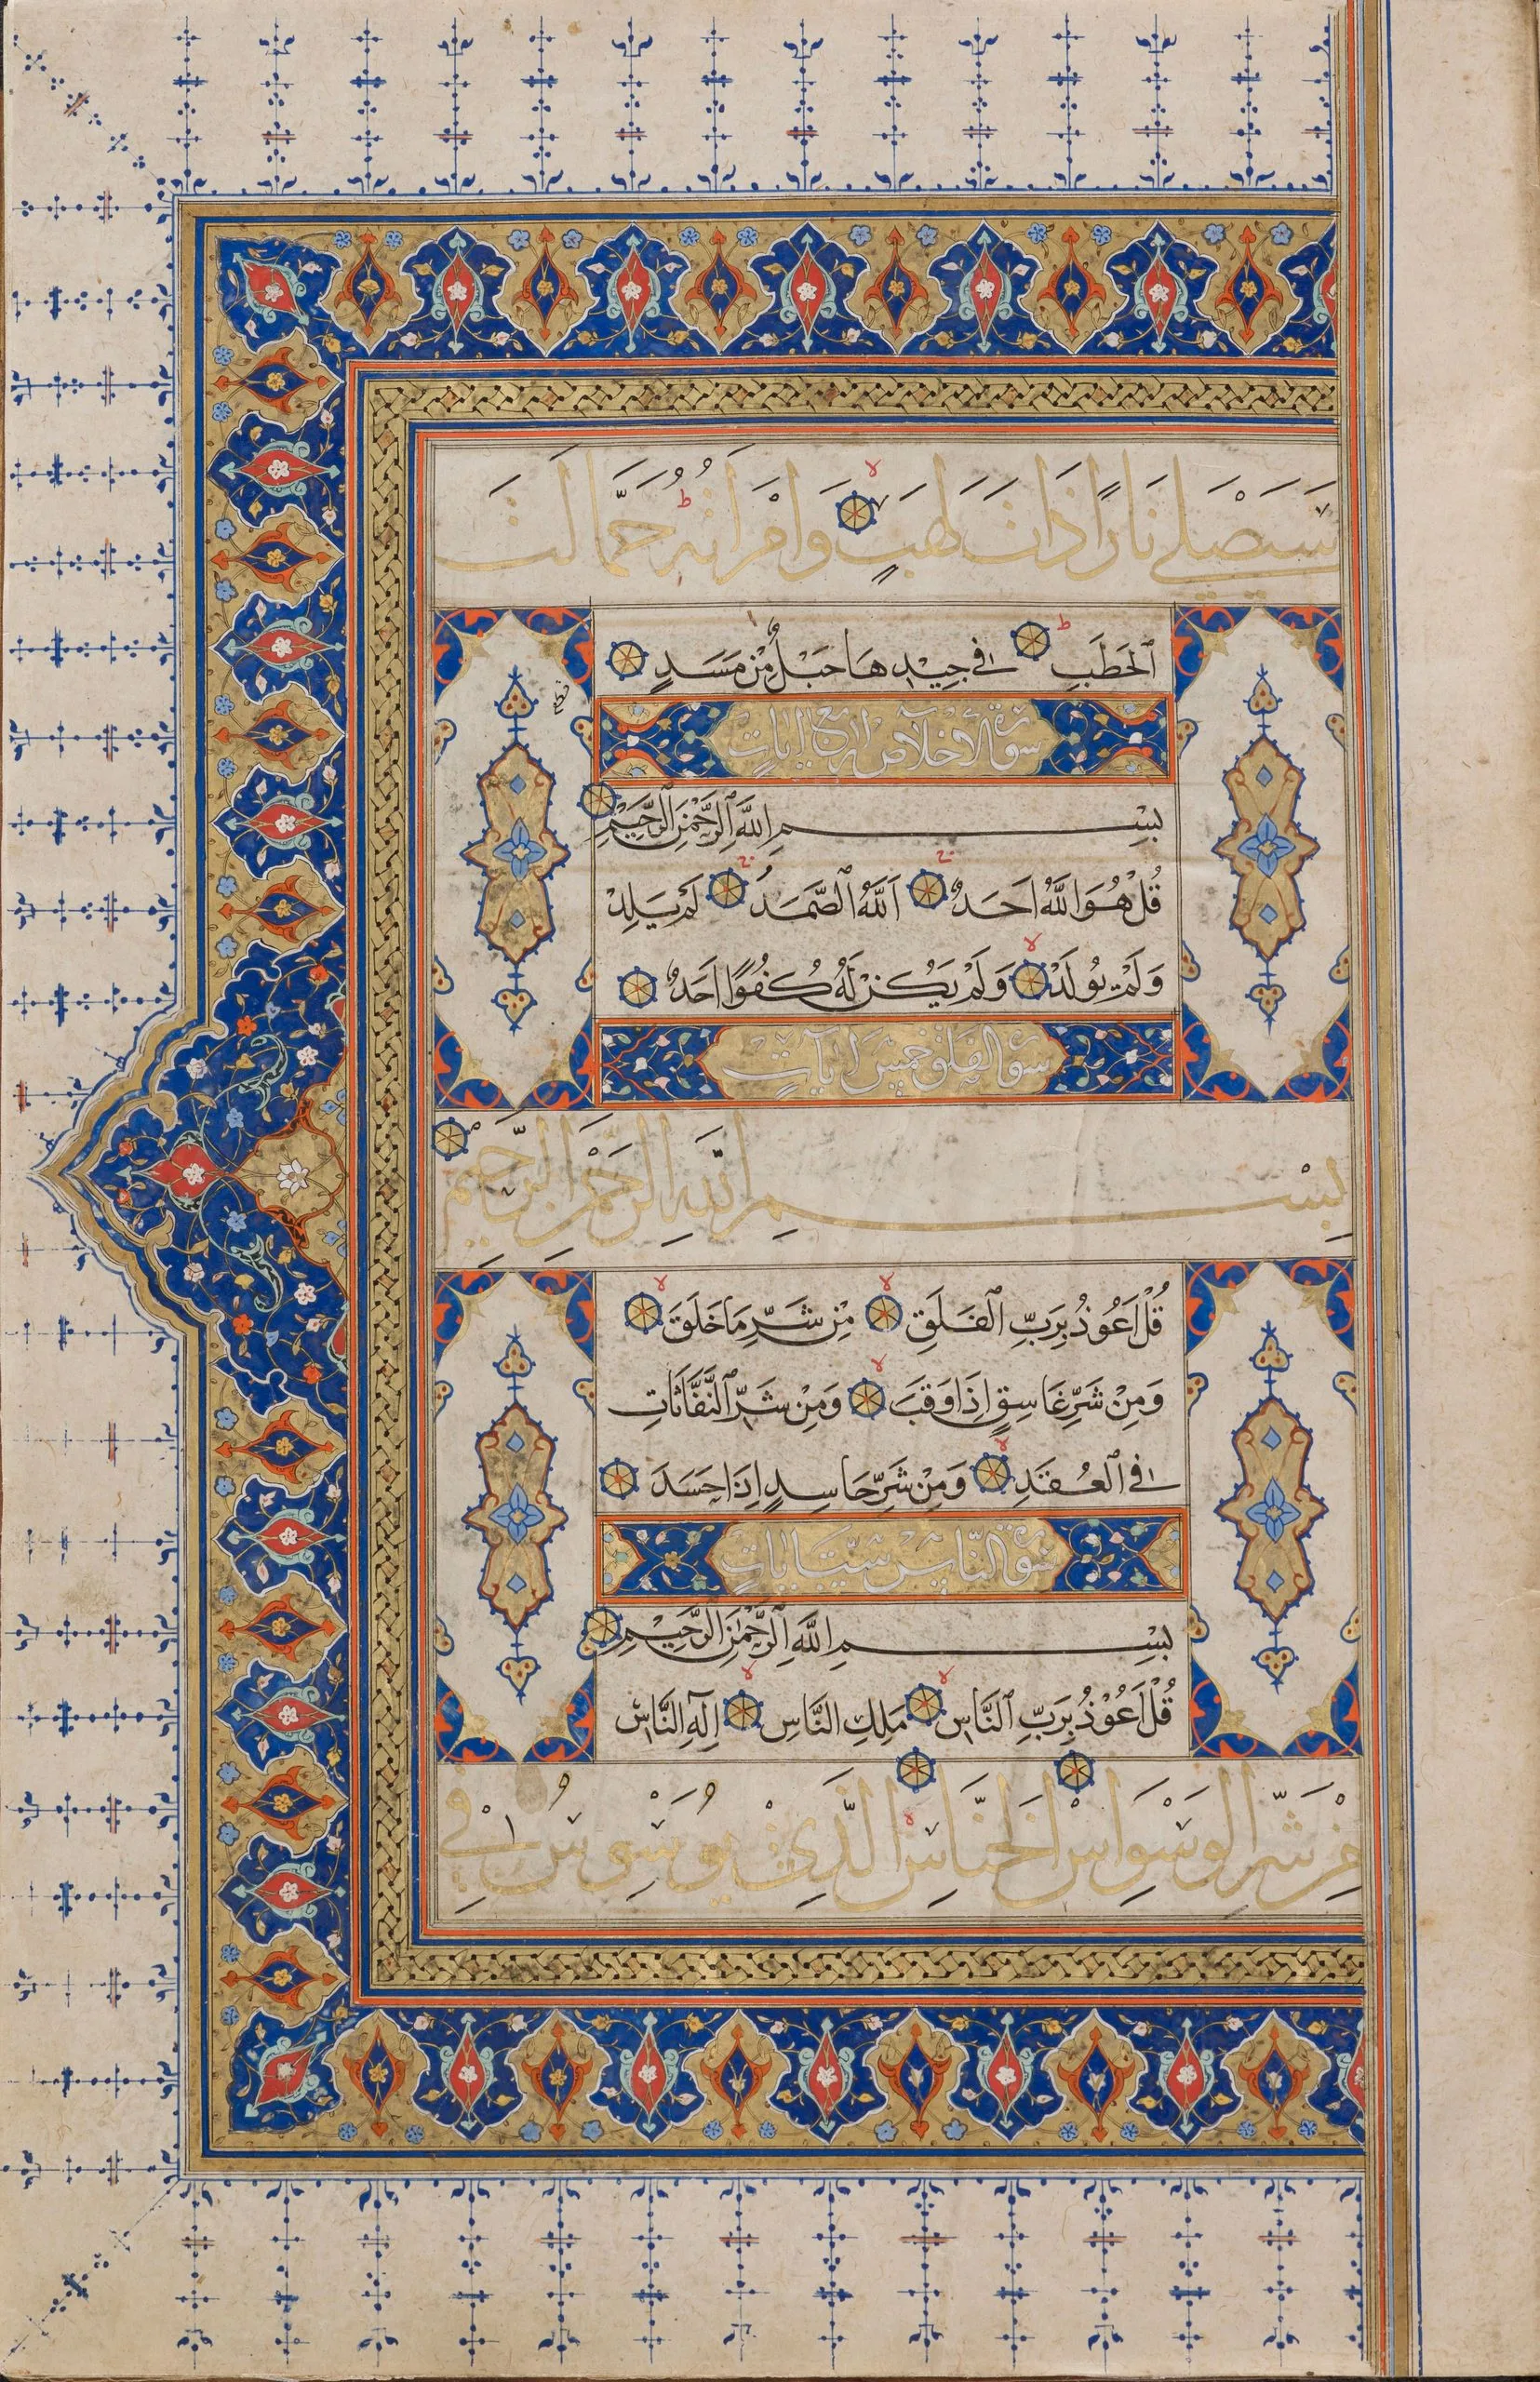 سَيَصْلٰى نَارًا ذَاتَ لَهَبٍ وَامْرَاَتُهُ حَمَّالَتَ
الْحَطَبِ فِي جِيْدِهَا حَبْلٌ مِنْ مَسَدٍ
سورة الاخلاص اربع ايات
بِسْمِ اللَّهِ الرَّحْمٰنِ الرَّحِيْمِ
قُلْ هُوَ اللَّهُ اَحَدٌ اَللَّهُ الصَّمَدُ لَمْ يَلِدْ
وَلَمْ يُولَدْ وَلَمْ يَكُنْ لَهُ كُفُوًا اَحَدٌ
سورة الفلق خمس ايات
بِسْمِ اللَّهِ الرَّحْمٰنِ الرَّحِيْمِ
قُلْ اَعُوْذُ بِرَبِّ الْفَلَقِ مِنْ شَرِّ مَا خَلَقَ
وَمِنْ شَرِّ غَاسِقٍ اِذَا وَقَبَ وَمِنْ شَرِّ النَّفَّاثَاتِ
فِي الْعُقَدِ وَمِنْ شَرِّ حَاسِدٍ اِذَا حَسَدَ
سورة الناس ست ايات
بِسْمِ اللَّهِ الرَّحْمٰنِ الرَّحِيْمِ
قُلْ اَعُوْذُ بِرَبِّ النَّاسِ مَلِكِ النَّاسِ اِلٰهِ النَّاسِ
مِنْ شَرِّ الْوَسْوَاسِ الْخَنَّاسِ الَّذِيْ يُوَسْوِسُ فِيْ